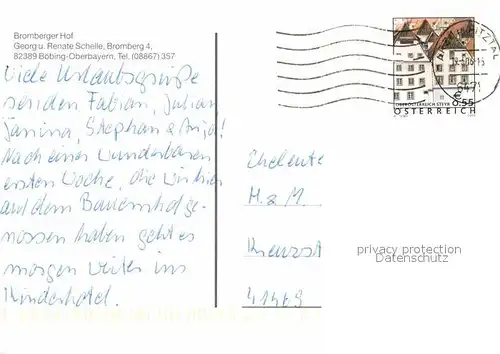 Bromberger Hof
Georg u. Renate Schelle, Bromberg 4,
82389 Böbing-Oberbayern, Tel. (08867) 357
Viele Urlaubsgrüße
senden Fabian, Julian
Janina, Stephan & Anja!
Nach einer wunderbaren
ersten Woche, die wir hier
auf dem Bauernhof ge-
nossen haben geht es
morgen weiter ins
Kinderhotel.
OBERÖSTERREICH, STEYR
€ 0,55
ÖSTERREICH
6471
Eheleute
M. & M.
Kreuzst
41469
privacy protection
Datenschutz